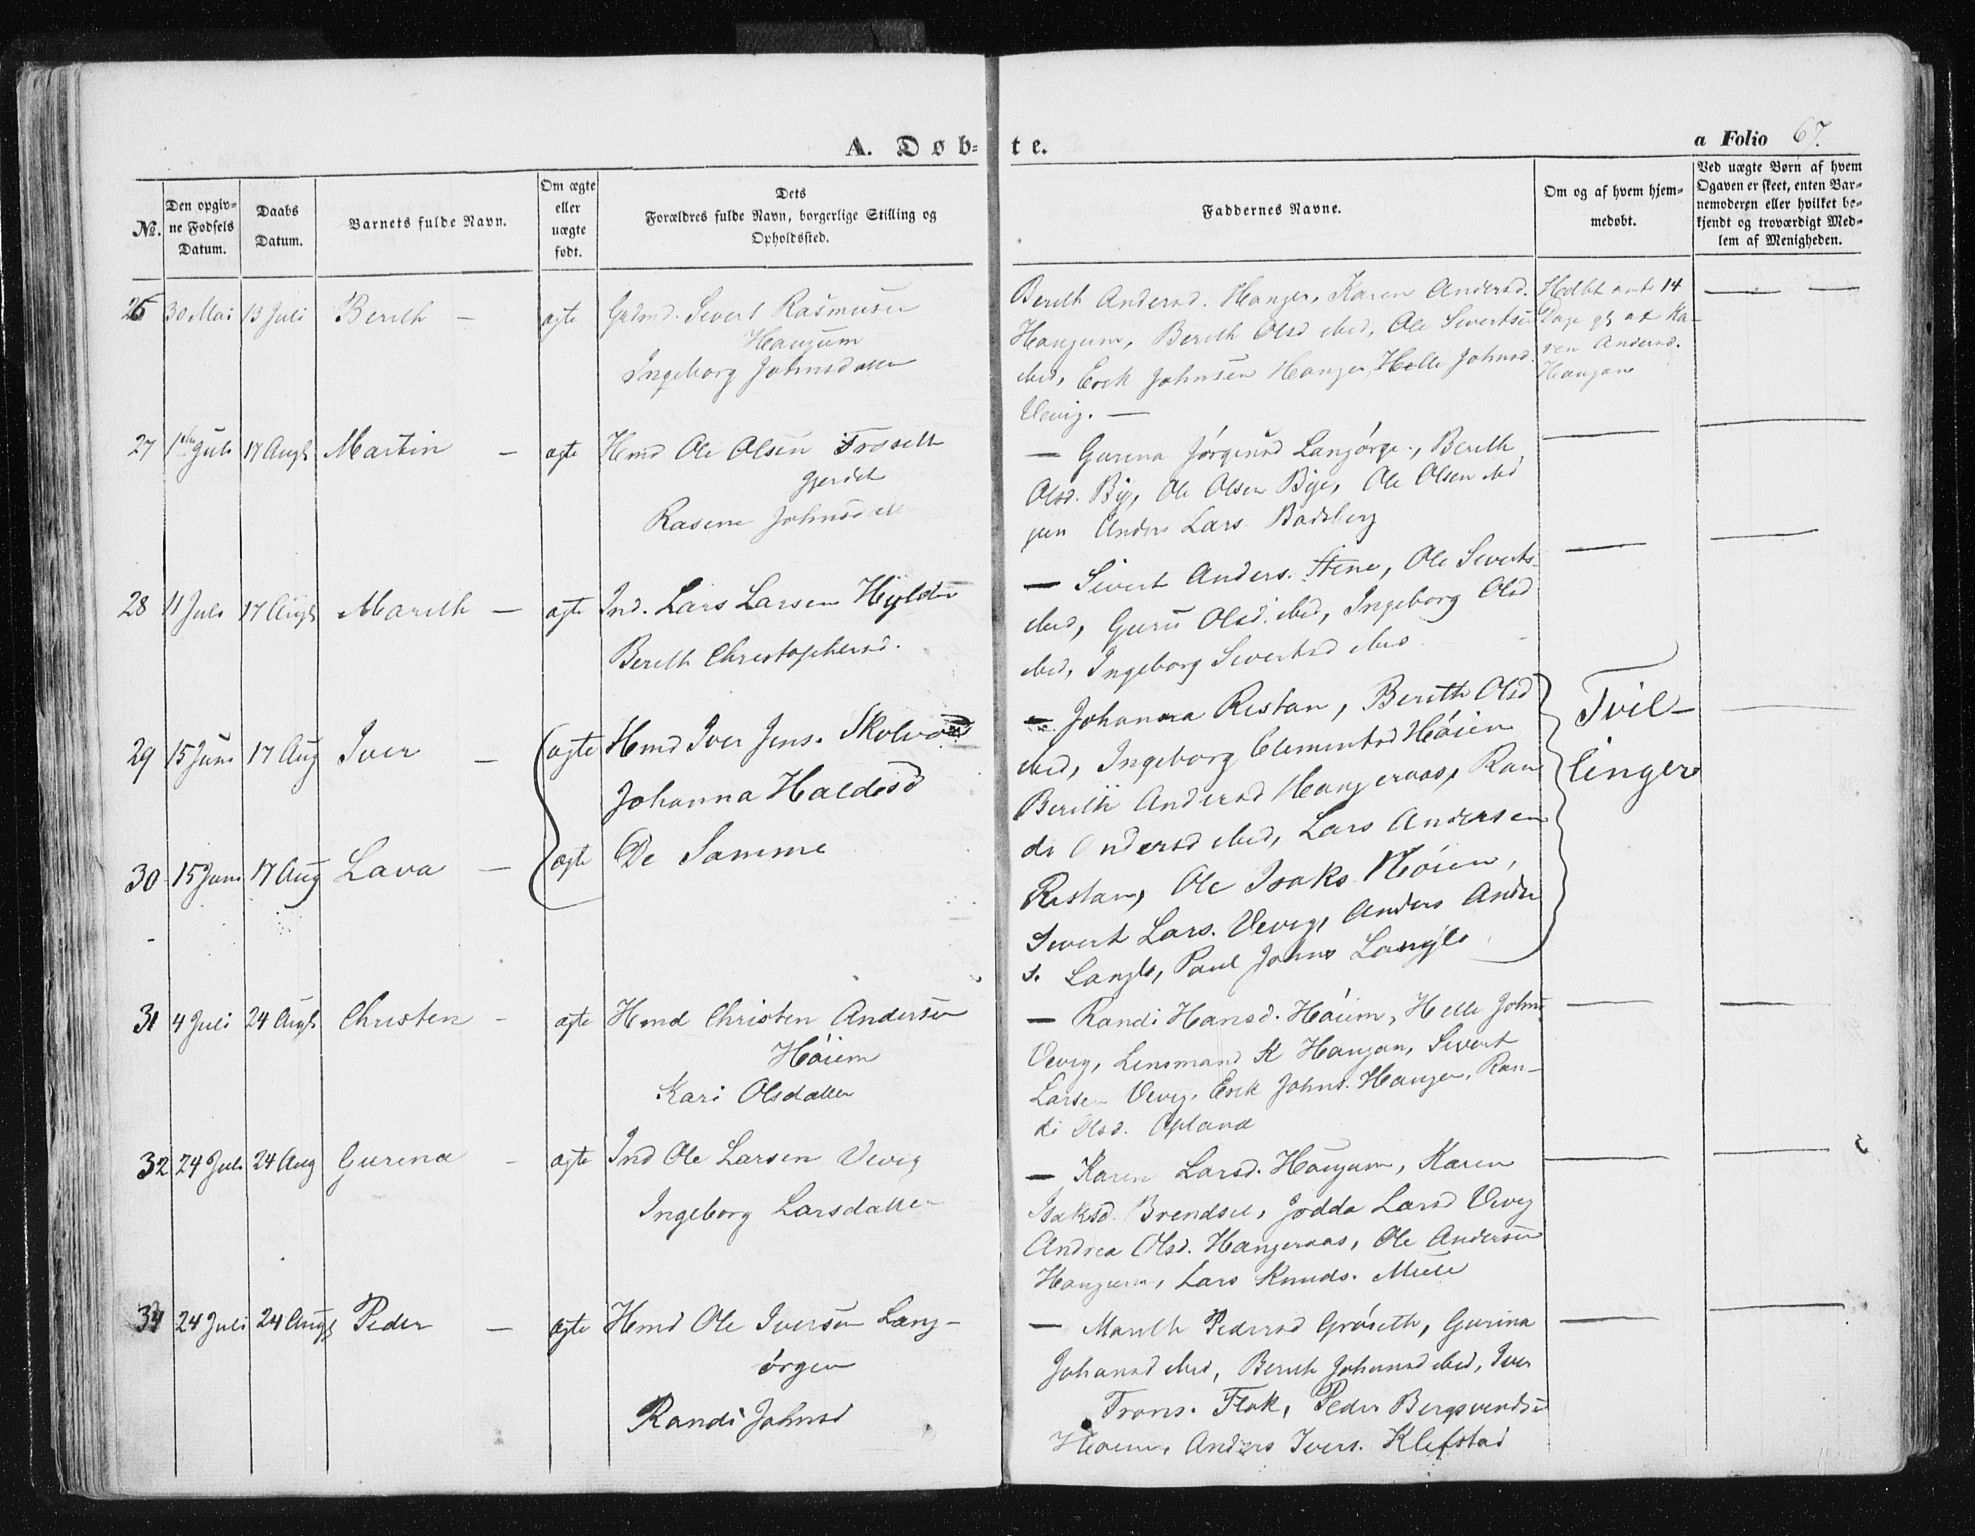 A. Døb-
te.
a Folio 67.
No.
Den opgiv-
ne Fødsels
Datum.
Daabs
Datum.
Barnets fulde Navn.
Om ægte
eller
uægte
født.
Dets
Forældres fulde Navn, borgerlige Stilling og
Opholdssted.
Faddernes Navne.
Om og af hvem hjem-
medøbt.
Ved uægte Børn af hvem
Opgaven er skeet, enten Bar-
nemoderen eller hvilket be-
kjendt og troværdigt Med-
lem af Menigheden.
26 30 Mai 13 Juli Berith — ægte
Sivert Rasmusen
Haugum
Ingeborg Johnsdatter
Berith Andersd. Hanger, Karen Andersd.
Haugum, Berith Olsd ibid, Ole Sivertsen
ibid, Erik Johnsen Hanger, Helle Johnsd.
Vevig. —
14
Andersd.
27 17 Augt Martin — ægte
Hmd Ole Olsen
gjerdet
Johnsd
— Gurina Jørgensd Langørge., Berith
Olsd. Bye, Ole Olsen Bye, Ole Olsen ibid
Anders Lars. Badsberg
28 11 Juli 17 Augt Marith — ægte
Ind. Lars Larsen
Berith Christophersd.
— Sivert Anders. Stene, Ole Siverts.
ibid, Guru Olsd. ibid, Ingeborg Olsd
ibid, Ingeborg Sivertsd ibid
29 15 Juni 17 Aug Iver — ægte
Hmd Iver Jens.
Johanna Haldosd
— Johanna Ristan, Berith Olsd
ibid, Ingeborg Clementsd Høiem
Berith Andersd Haugeraas, Ran
di Andersd ibid, Lars Andersen
Ristan, Ole Isaks. Høiem,
Sivert Lars. Vevig, Anders Ander
s. Langl, Paul Johns Langl
Tvil-
linger
30 15 Juni 17 Aug Lava — ægte
De Samme
31 4 Juli 24 Augt Christen - ægte
Hmd Christen Andersen
Høiem
Kari Olsdatter
— Randi Hansd. Høiem, Helle Johns
Vevig, Lensmand K Haugan, Sivert
Larsen Vevig, Erik Johns. Hanger, Ran-
di Olsd. Opland
32 24 Juli 24 Aug Gurina - ægte
Ind Ole Larsen Vevig
Ingeborg Larsdatter
— Karen Larsd. Haugum, Karen
Isaksd. Jodda Larsd Vevig
Andrea Olsd. Haugeraas, Ole Andersen
Haugum, Lars Knuds.
24 Juli 24 Augt Peder — ægte
Hmd Ole Iversen Lang-
ørgen
Randi Johnsd
— Marith Pedersd Grøseth, Gurina
Johansd ibid, Berith Johansd ibid, Iver
Trons. Flak, Peder Bergsvendsen
Høiem, Anders Ivers. Klefstad